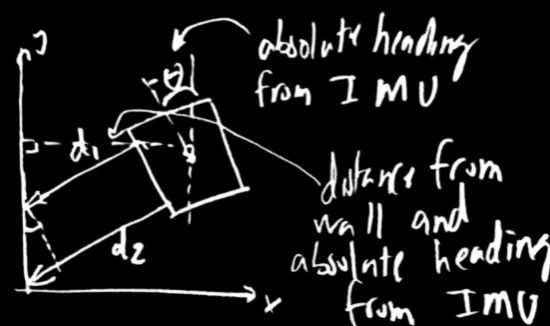 y
absolute heading
from IMU
θ
d1
distance from
wall and
absolute heading
from IMU
d2
x